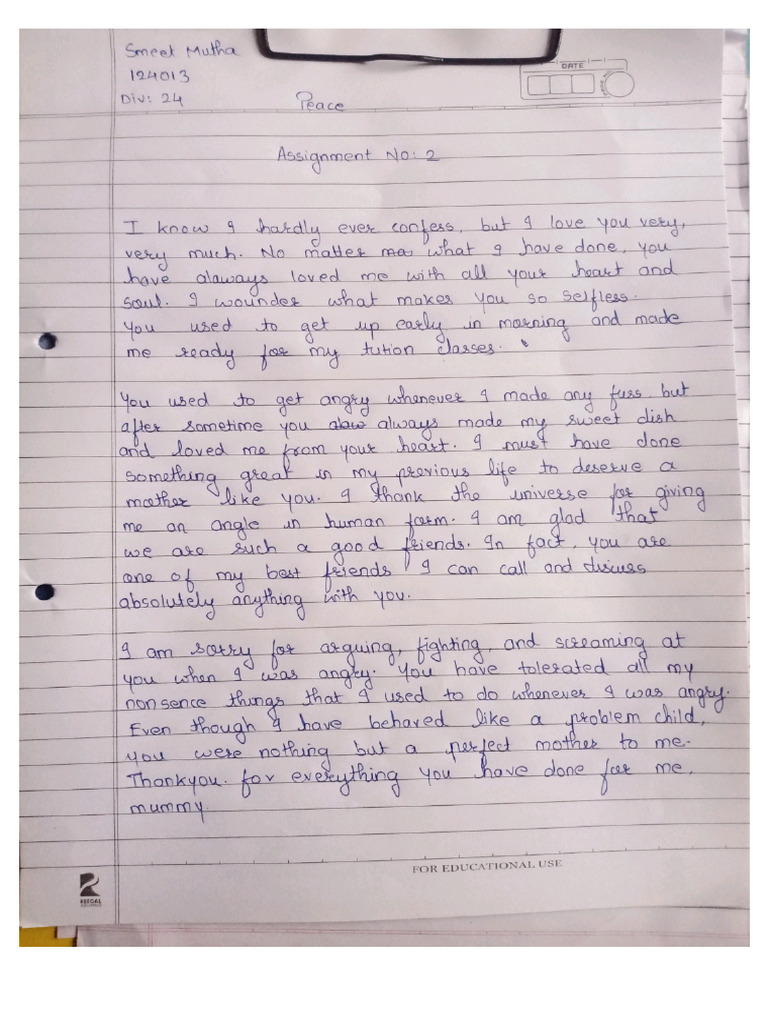 Smeet Mutha
124013
Div: 24
Peace
DATE
Assignment No: 2
I know I hardly ever confess, but I love you very,
very much. No matter ma what I have done, you
have alaways loved me with all your heart and
soul. I wounder what makes you so selfless.
You used to get up early in morning and made
me ready for my tution classes.
You used to get angry whenever I made any fuss but
after sometime you alaw always made my sweet dish
and loved me from your heart. I must have done
something great in my previous life to deserve a
mother like you. I thank the universe for giving
me an angle in human form. I am glad that
we are such a good friends. In fact, you are
one of my best friends I can call and discuss
absolutely anything with you.
I am sorry for arguing, fighting, and screaming at
you when I was angry. You have tolerated all my
nonsence things that I used to do whenever I was angry.
Even though I have behaved like a problem child,
you were nothing but a perfect mother to me.
Thankyou. for everything you have done for me,
mummy.
FOR EDUCATIONAL USE
REEGAL